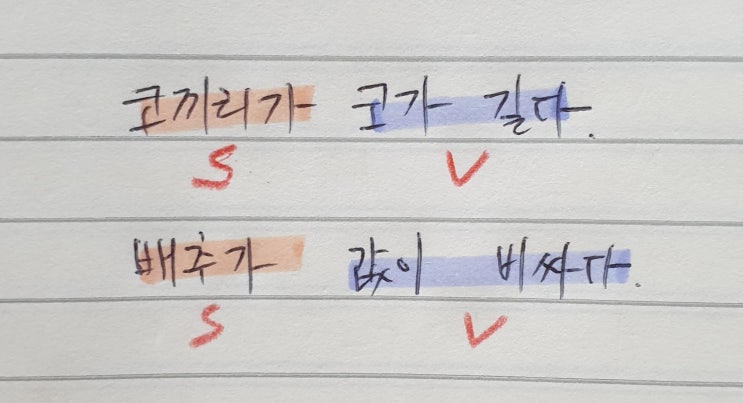 코끼리가 코가 길다.
S V
배추가 값이 비싸다.
S V